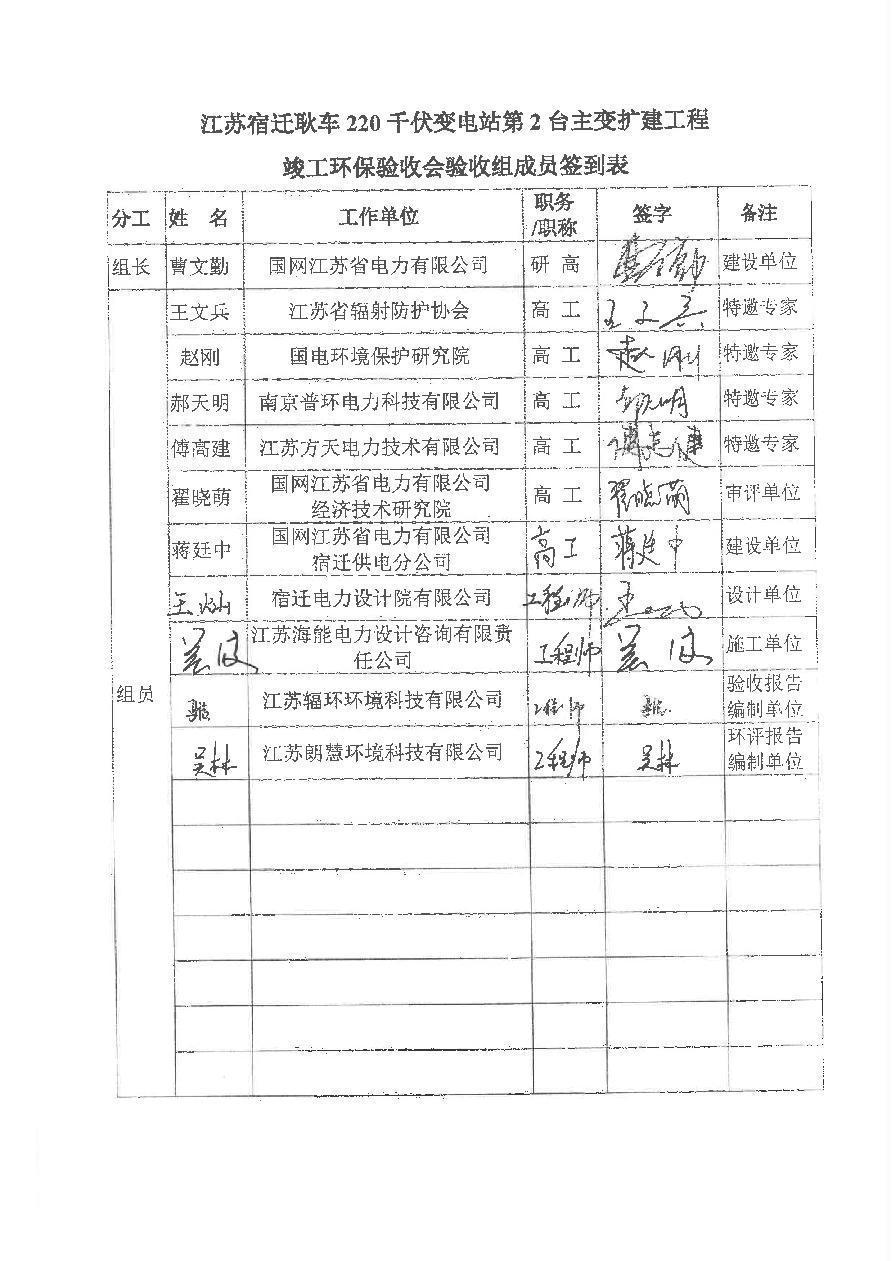 江苏宿迁耿车 220 千伏变电站第 2 台主变扩建工程
竣工环保验收会验收组成员签到表
分工 姓 名 工作单位 职务/职称 签字 备注
组长 曹文勤 国网江苏省电力有限公司 研 高 曹文勤 建设单位
组员
王文兵 江苏省辐射防护协会 高 工 王文兵 特邀专家
赵刚 国电环境保护研究院 高 工 赵刚 特邀专家
郝天明 南京普环电力科技有限公司 高 工 郝天明 特邀专家
傅高建 江苏方天电力技术有限公司 高 工 特邀专家
翟晓萌 国网江苏省电力有限公司 高 工 翟晓萌 审评单位
经济技术研究院
蒋廷中 国网江苏省电力有限公司 高工 蒋廷中 建设单位
宿迁供电分公司
王灿 宿迁电力设计院有限公司 工程师 设计单位
江苏海能电力设计咨询有限责 工程师 施工单位
任公司
江苏辐环环境科技有限公司 工程师 验收报告
编制单位
吴林 江苏朗慧环境科技有限公司 工程师 吴林 环评报告
编制单位